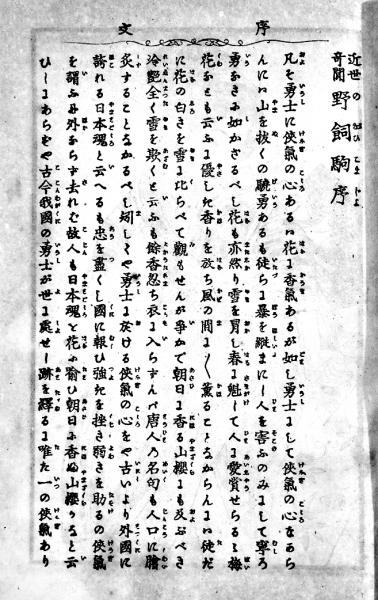 序文
近世の奇聞 野飼駒序
凡そ勇士に俠氣の心あるハ花に香氣あるが如し勇士にして俠氣の心なあら
んにハ山を拔くの驍勇あるも徒らに暴を縱まにし人を害ふのみにして寧ろ
勇なきに如かざるべし花も亦然り雪を冒し春に魁して人に愛賞せらるゝ梅
花なども云ふに優しき香りを放ち風の間に〱薰ることなからんにハ徒だ
に花の白きを雪に比らべて觀もせんが爭かで朝日に香る山櫻にも及ぶべき
冷艷全く雪を欺くと云ふも餘香忍ち衣に入らずんバ唐人の名句も人口に膾
炙することなかるべし矧してや勇士に於ける俠氣の心をや古いより外國に
誇れる日本魂と云へるも忠を盡くし國に報ひ強きを挫き弱きを助るの俠氣
を謂ふの外ならず去れバ故人も日本魂と花に喩ひ朝日に香ぬ山櫻かなと云
ひしにあらずや古今我國の勇士が世に處せし跡を繹るに唯た一の俠氣あり